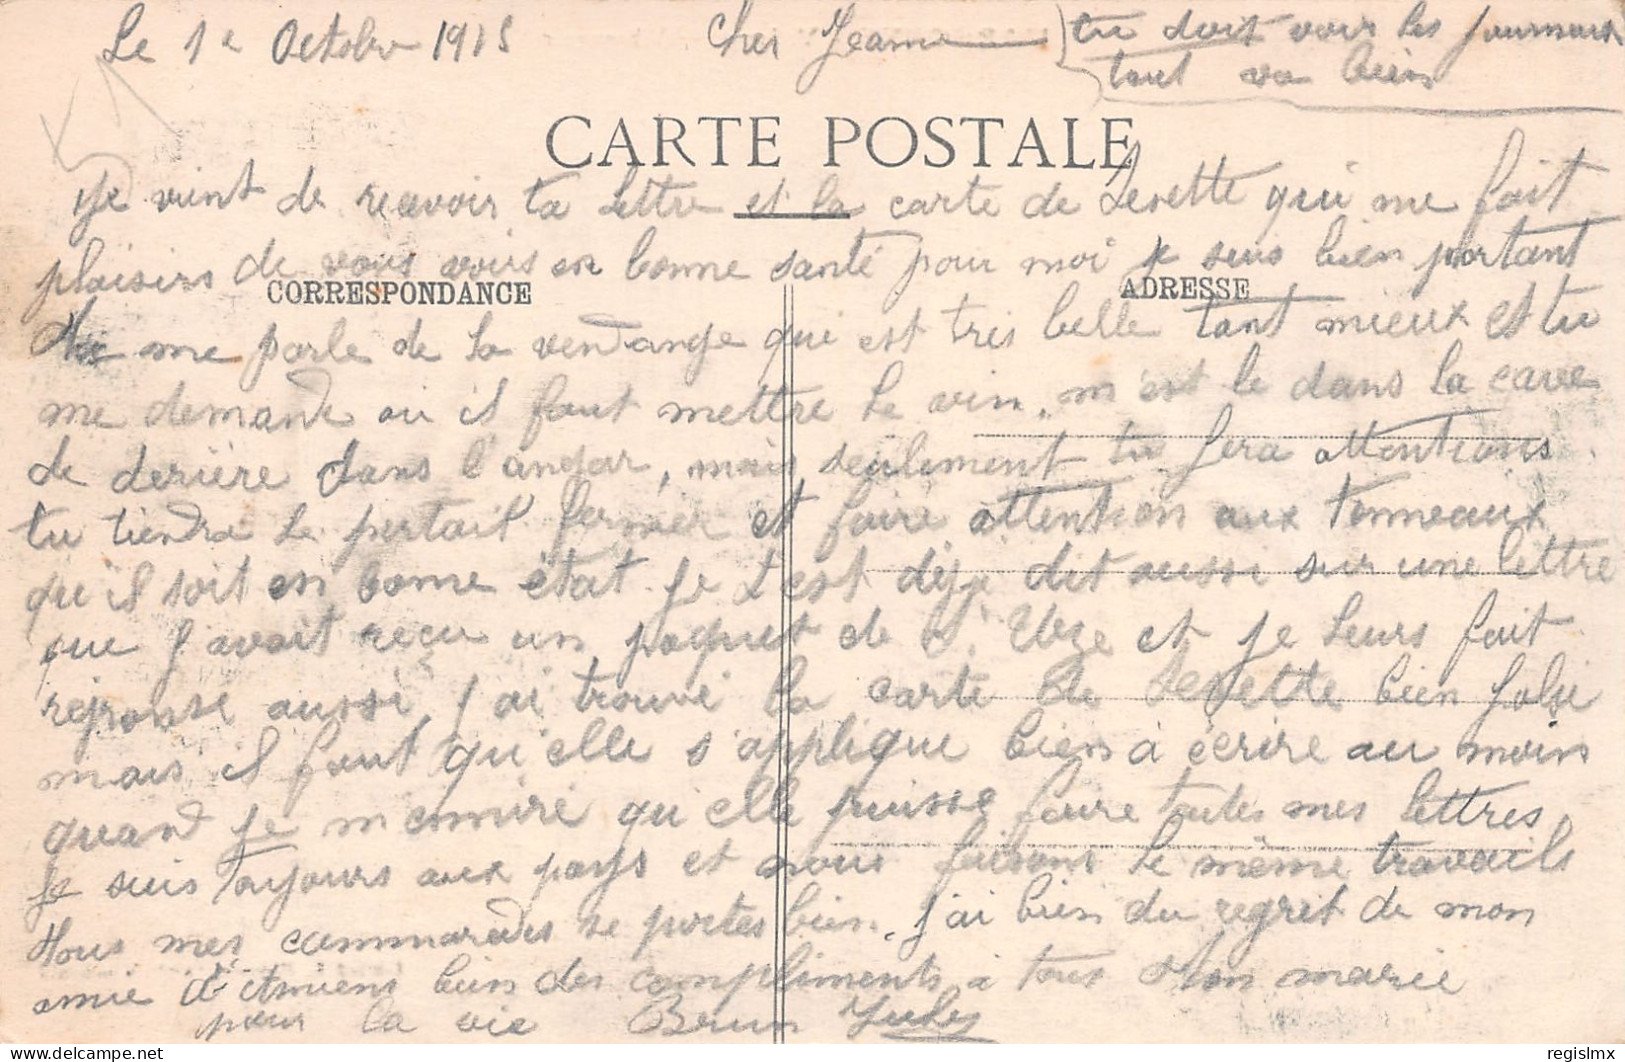 Le 1e Octobre 1915 Cher Jeanne tu doit voir les journeaux
tout va bien
CARTE POSTALE
Je vient de reavoir ta lettre et la carte de Levette qui me fait
plaisirs de vous voirs en bonne santé pour moi je suis bien portant
CORRESPONDANCE ADRESSE
me parle de la vendange qui est tres belle tant mieux et tu
me demande ou il faut mettre le vin. m'est le dans la cave
de derière dans l'angar, mais seulement tu fera attentions
tu tiendra le portail fermer et faire attention aux tonneaux
qu'il soit en bonne état je t'est déja dit aussi sur une lettre
que j'avait recu un paquet de et je leurs fait
réponse aussi j'ai trouvé la carte de Levette bien jolie
mais il faut qu'elle s'applique bien a écrire au moin
quand je m'enniré qu'elle puisse faire toutes mes lettres
je suis toujours aux pays et nous faisons le même travails
Tous mes cammarades se portes bien. j'ai bien du regret de mon
amie bien des compliments a tous Ton marie
pour la vie Brun Jules
regislmx